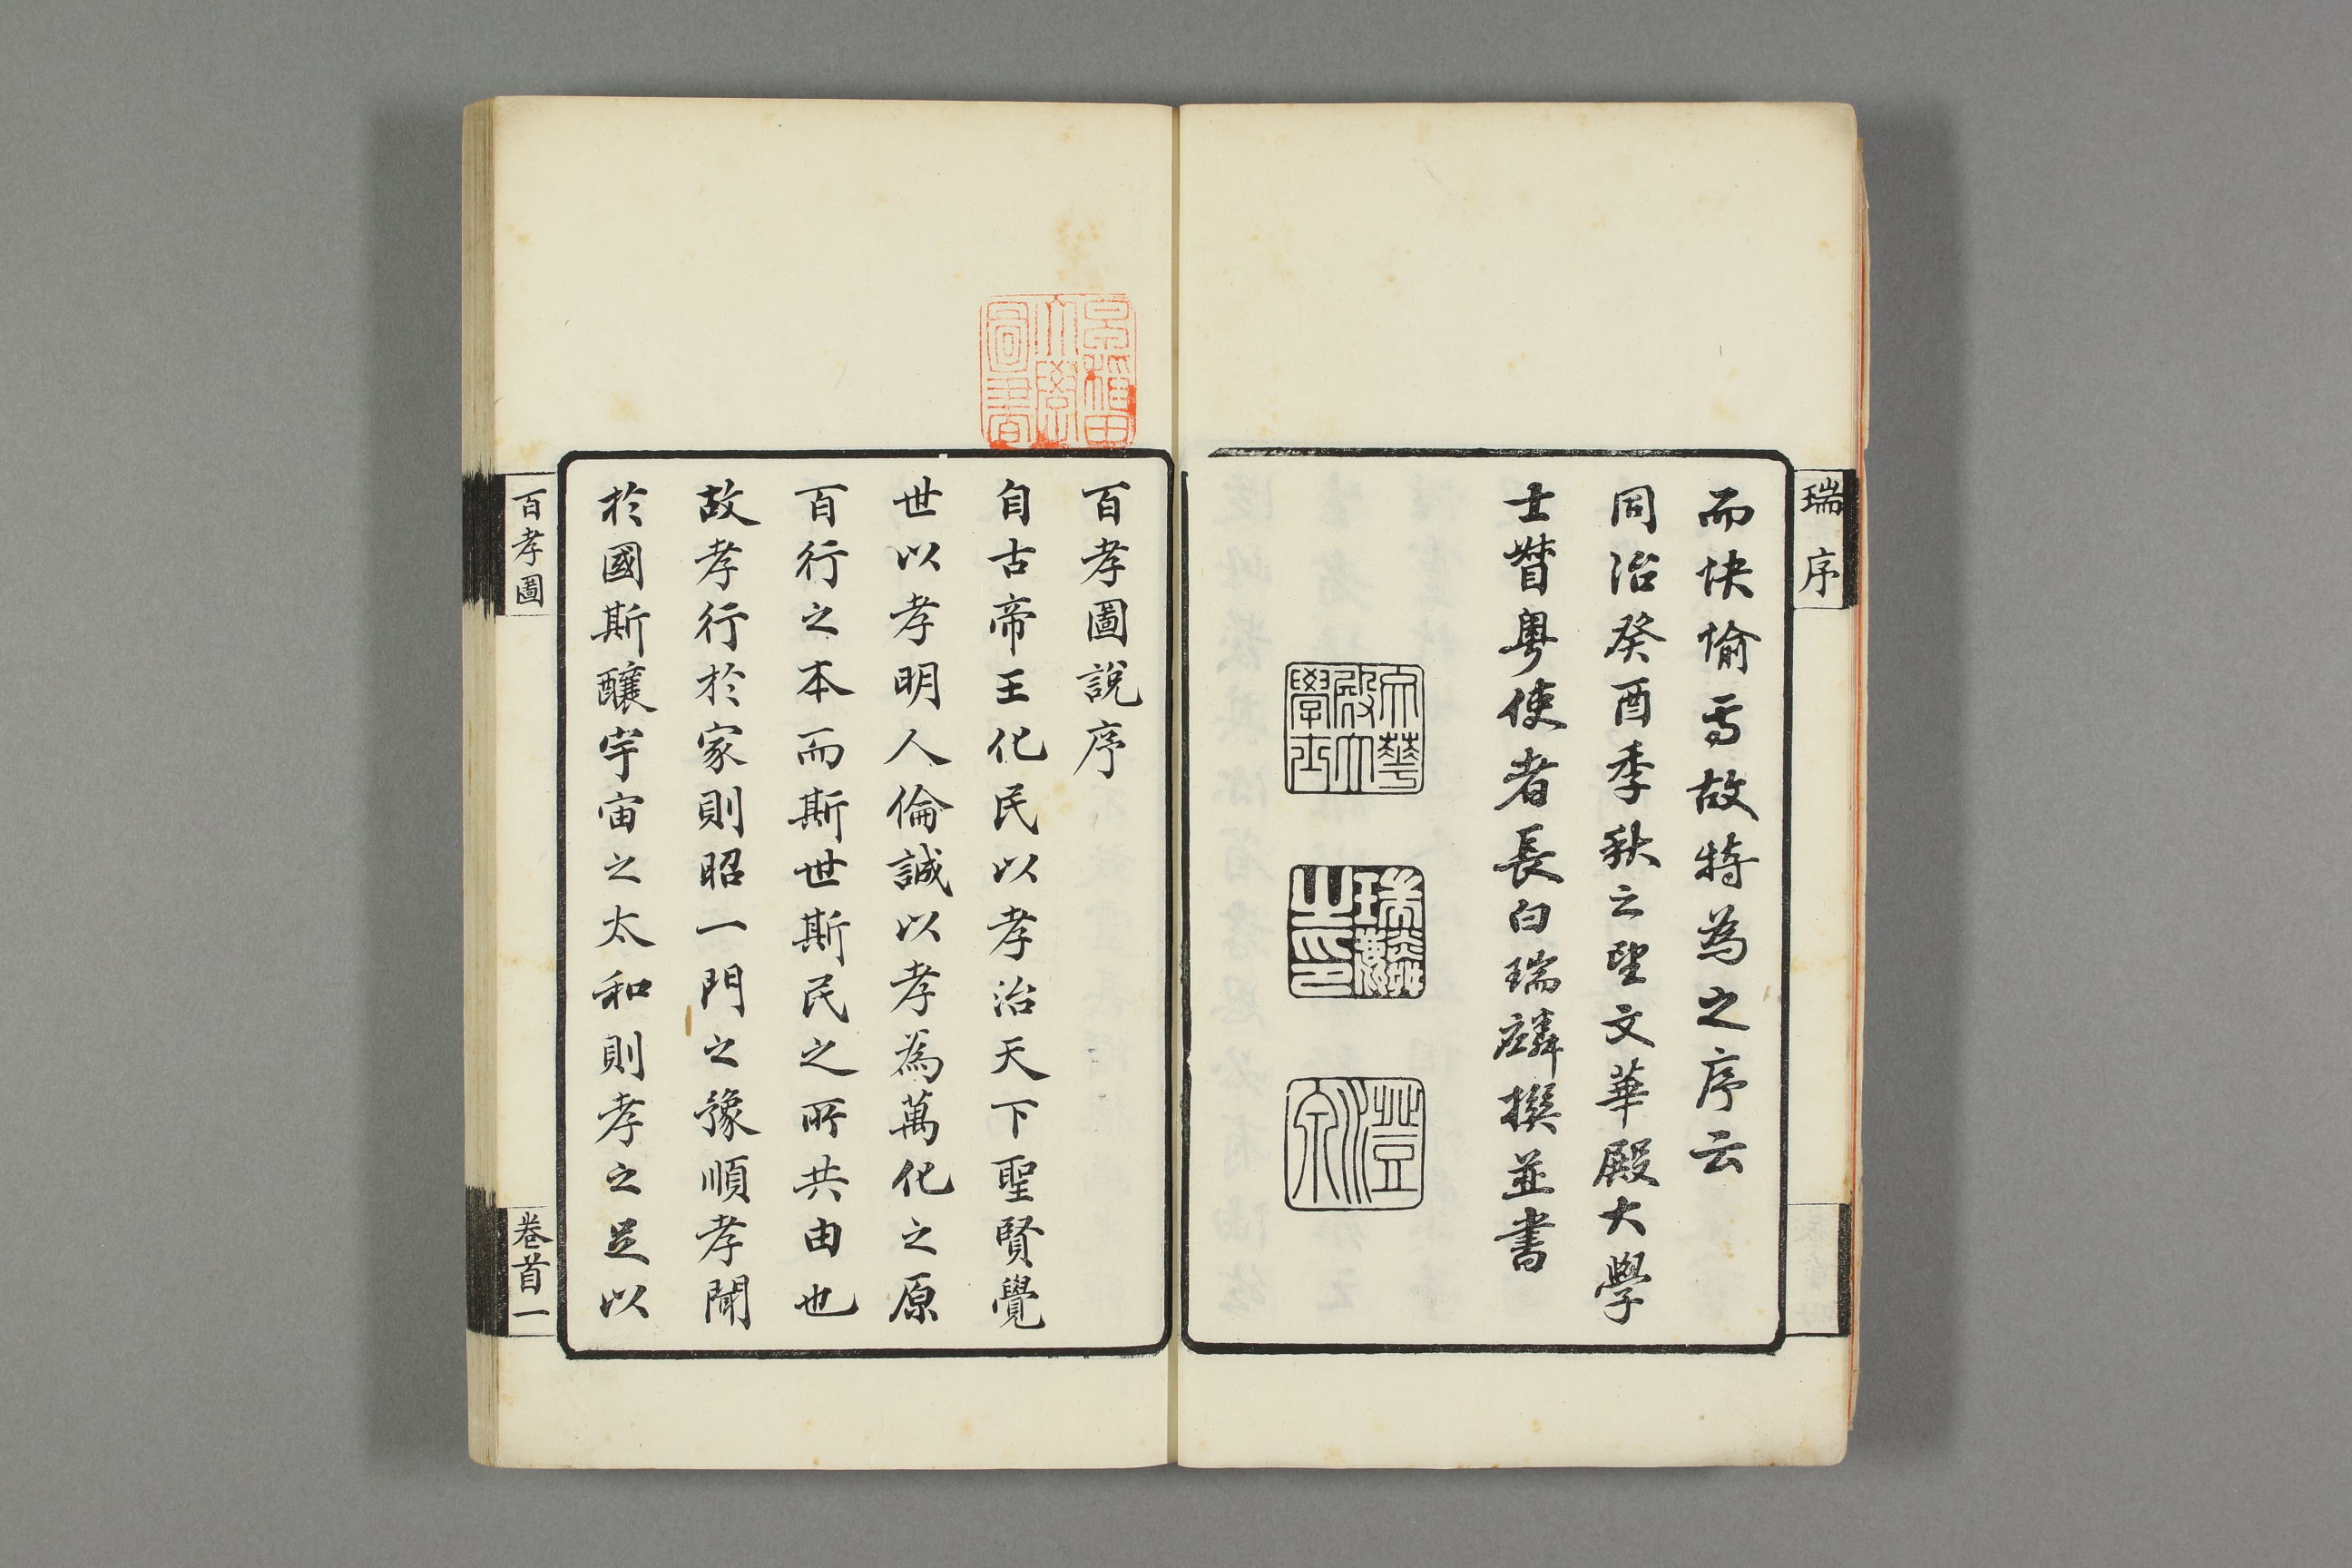 瑞序
而快愉焉故特為之序云
同治癸酉季秋之望文華殿大學
士督粵使者長白瑞麟撰並書
文華殿大學士
瑞麟之印
澄泉
早稻田大學圖書
百孝圖說序
自古帝王化民以孝治天下聖賢覺
世以孝明人倫誠以孝為萬化之原
百行之本而斯世斯民之所共由也
故孝行於家則昭一門之豫順孝聞
於國斯釀宇宙之太和則孝之足以
百孝圖
卷首一